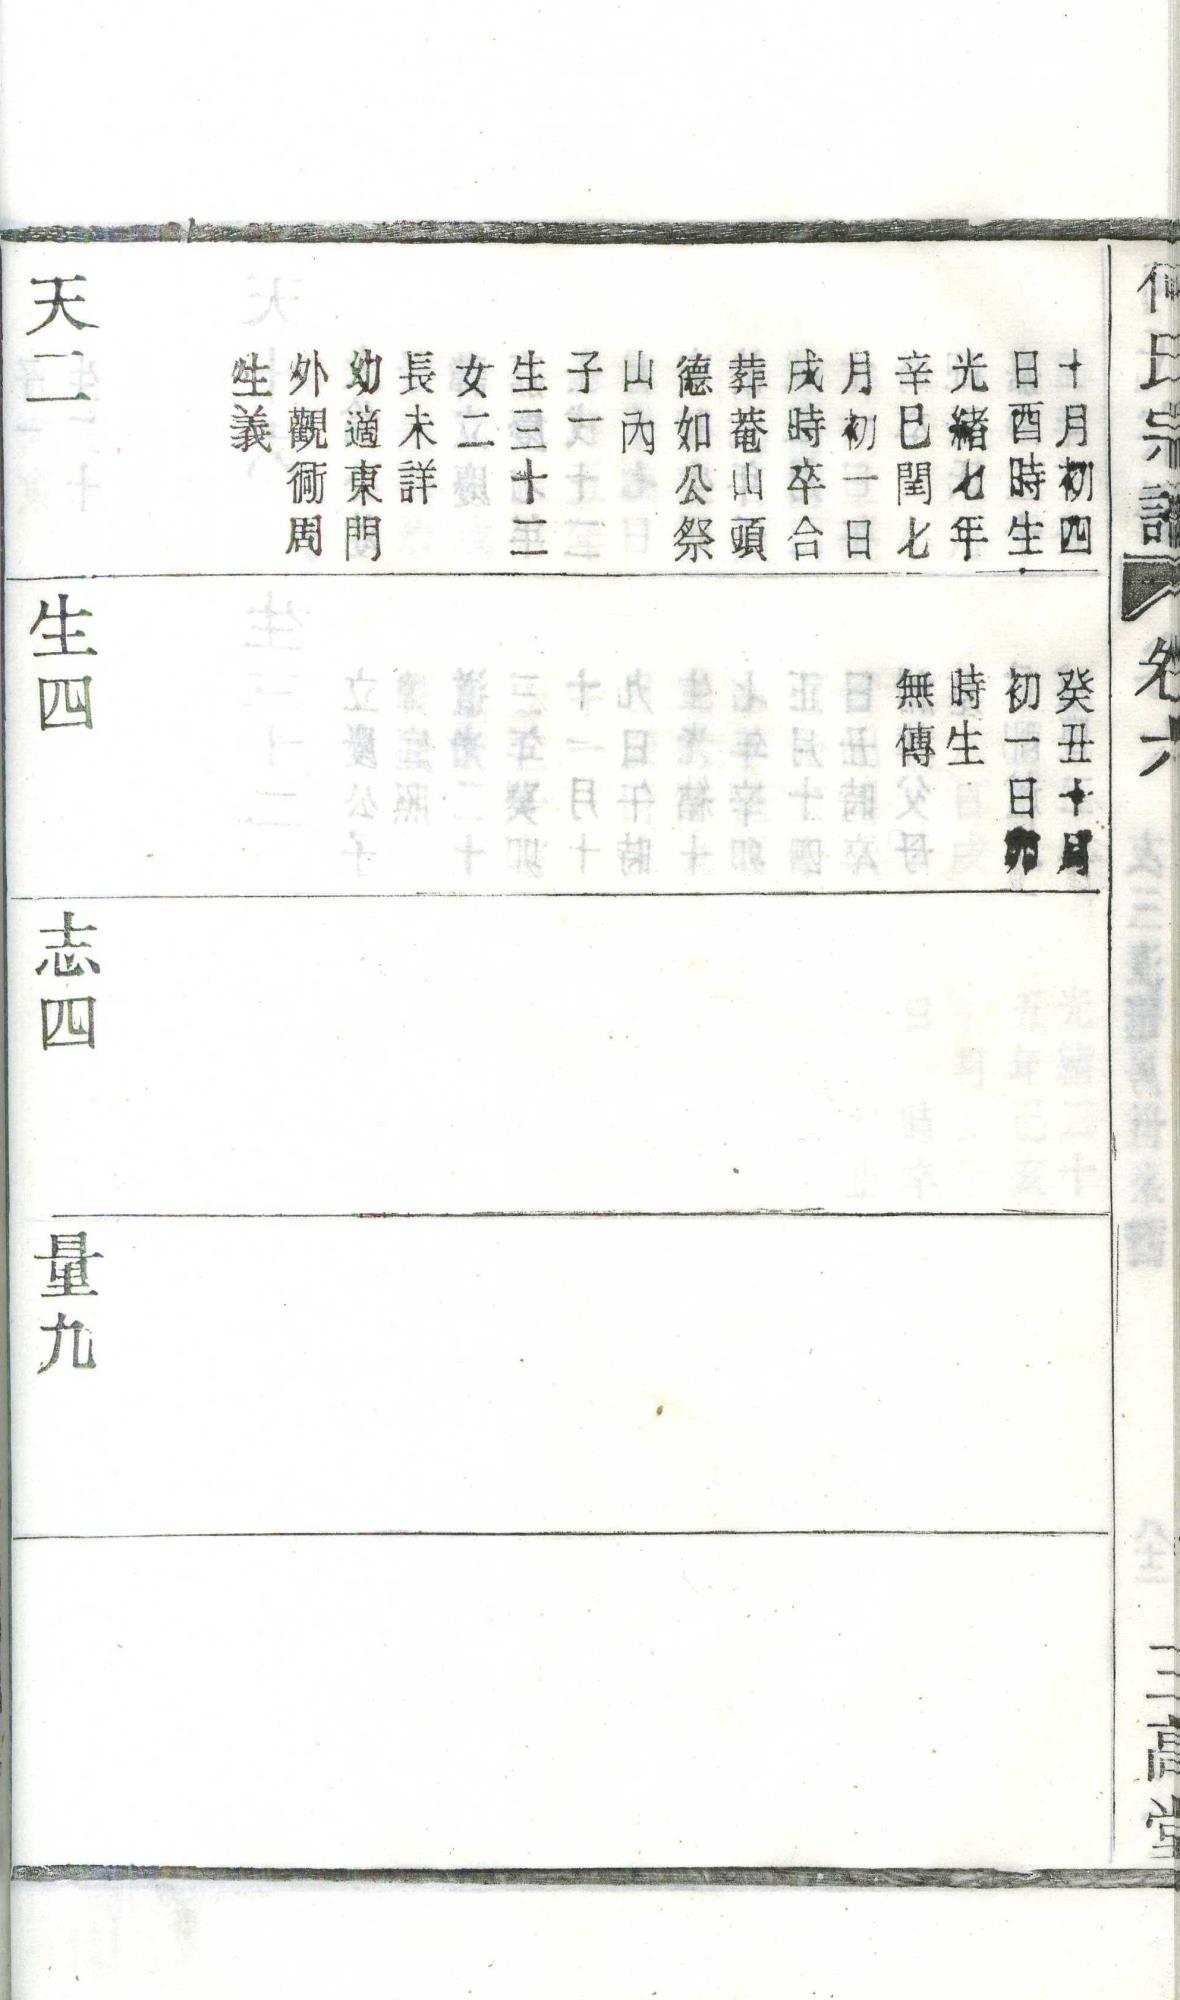 何氏宗譜
卷六
三高堂
十月初四
日酉時生
光緒七年
辛巳閏七
月初一日
戌時卒合
葬菴山頭
德如公祭
山內
子一
生三十二
女二
長未詳
幼適東門
外觀衕周
姓義
天二
癸丑十月
初一日卯
時生
無傳
生四
志四
量九